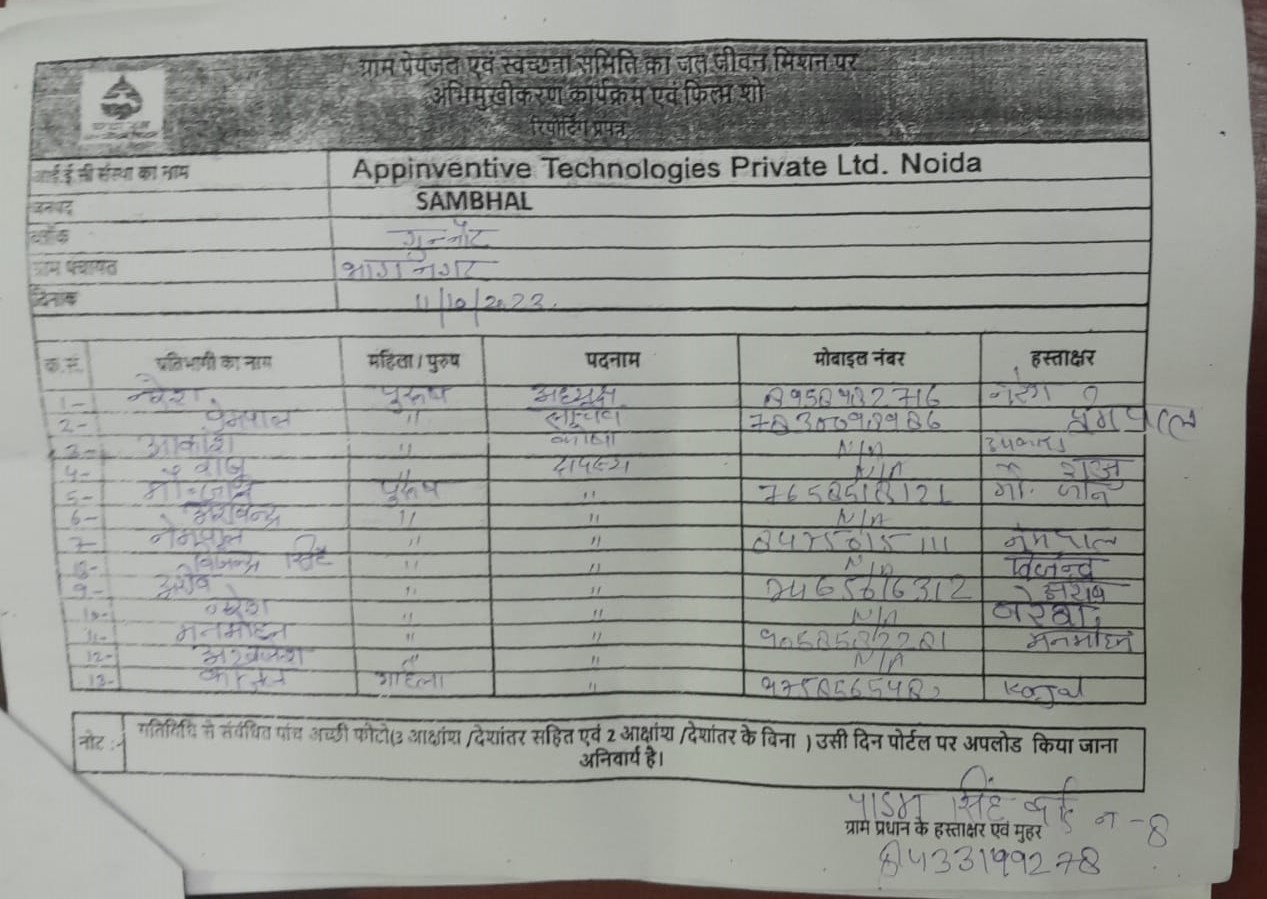 ग्राम पेयजल एवं स्वच्छता समिति का जल जीवन मिशन पर
अभिमुखीकरण कार्यक्रम एवं फिल्म शो
रिपोर्टिंग प्रपत्र
आई ई सी संस्था का नाम Appinventive Technologies Private Ltd. Noida
जनपद SAMBHAL
ब्लॉक गुन्नौर
ग्राम पंचायत भागनगर
दिनांक 11/10/2023.
क.सं. प्रतिभागी का नाम महिला / पुरुष पदनाम मोबाइल नंबर हस्ताक्षर
1- नरेश पुरुष अध्यक्ष 8958982716
2- प्रेमपाल " सचिव
3- आकाश " N/A
4- राजू " सदस्य N/A राजू
5- मौ. जाने पुरुष " 7658518121 मौ. जाने
6- " " N/A
7- नेमपाल " " 8475015111 नेमपाल
8- विजेन्द्र सिंह " " N/A विजेन्द्र
9- " "
10- नरेश " " N/A
11- मनमोहन " " मनमोहन
12- " " N/A
13- महिला " Kajal
नोट :- गतिविधि से संबंधित पांच अच्छी फोटो(3 आक्षांश /देशांतर सहित एवं 2 आक्षांश /देशांतर के विना ) उसी दिन पोर्टल पर अपलोड किया जाना
अनिवार्य है।
सिंह न -8
ग्राम प्रधान के हस्ताक्षर एवं मुहर
8433199278